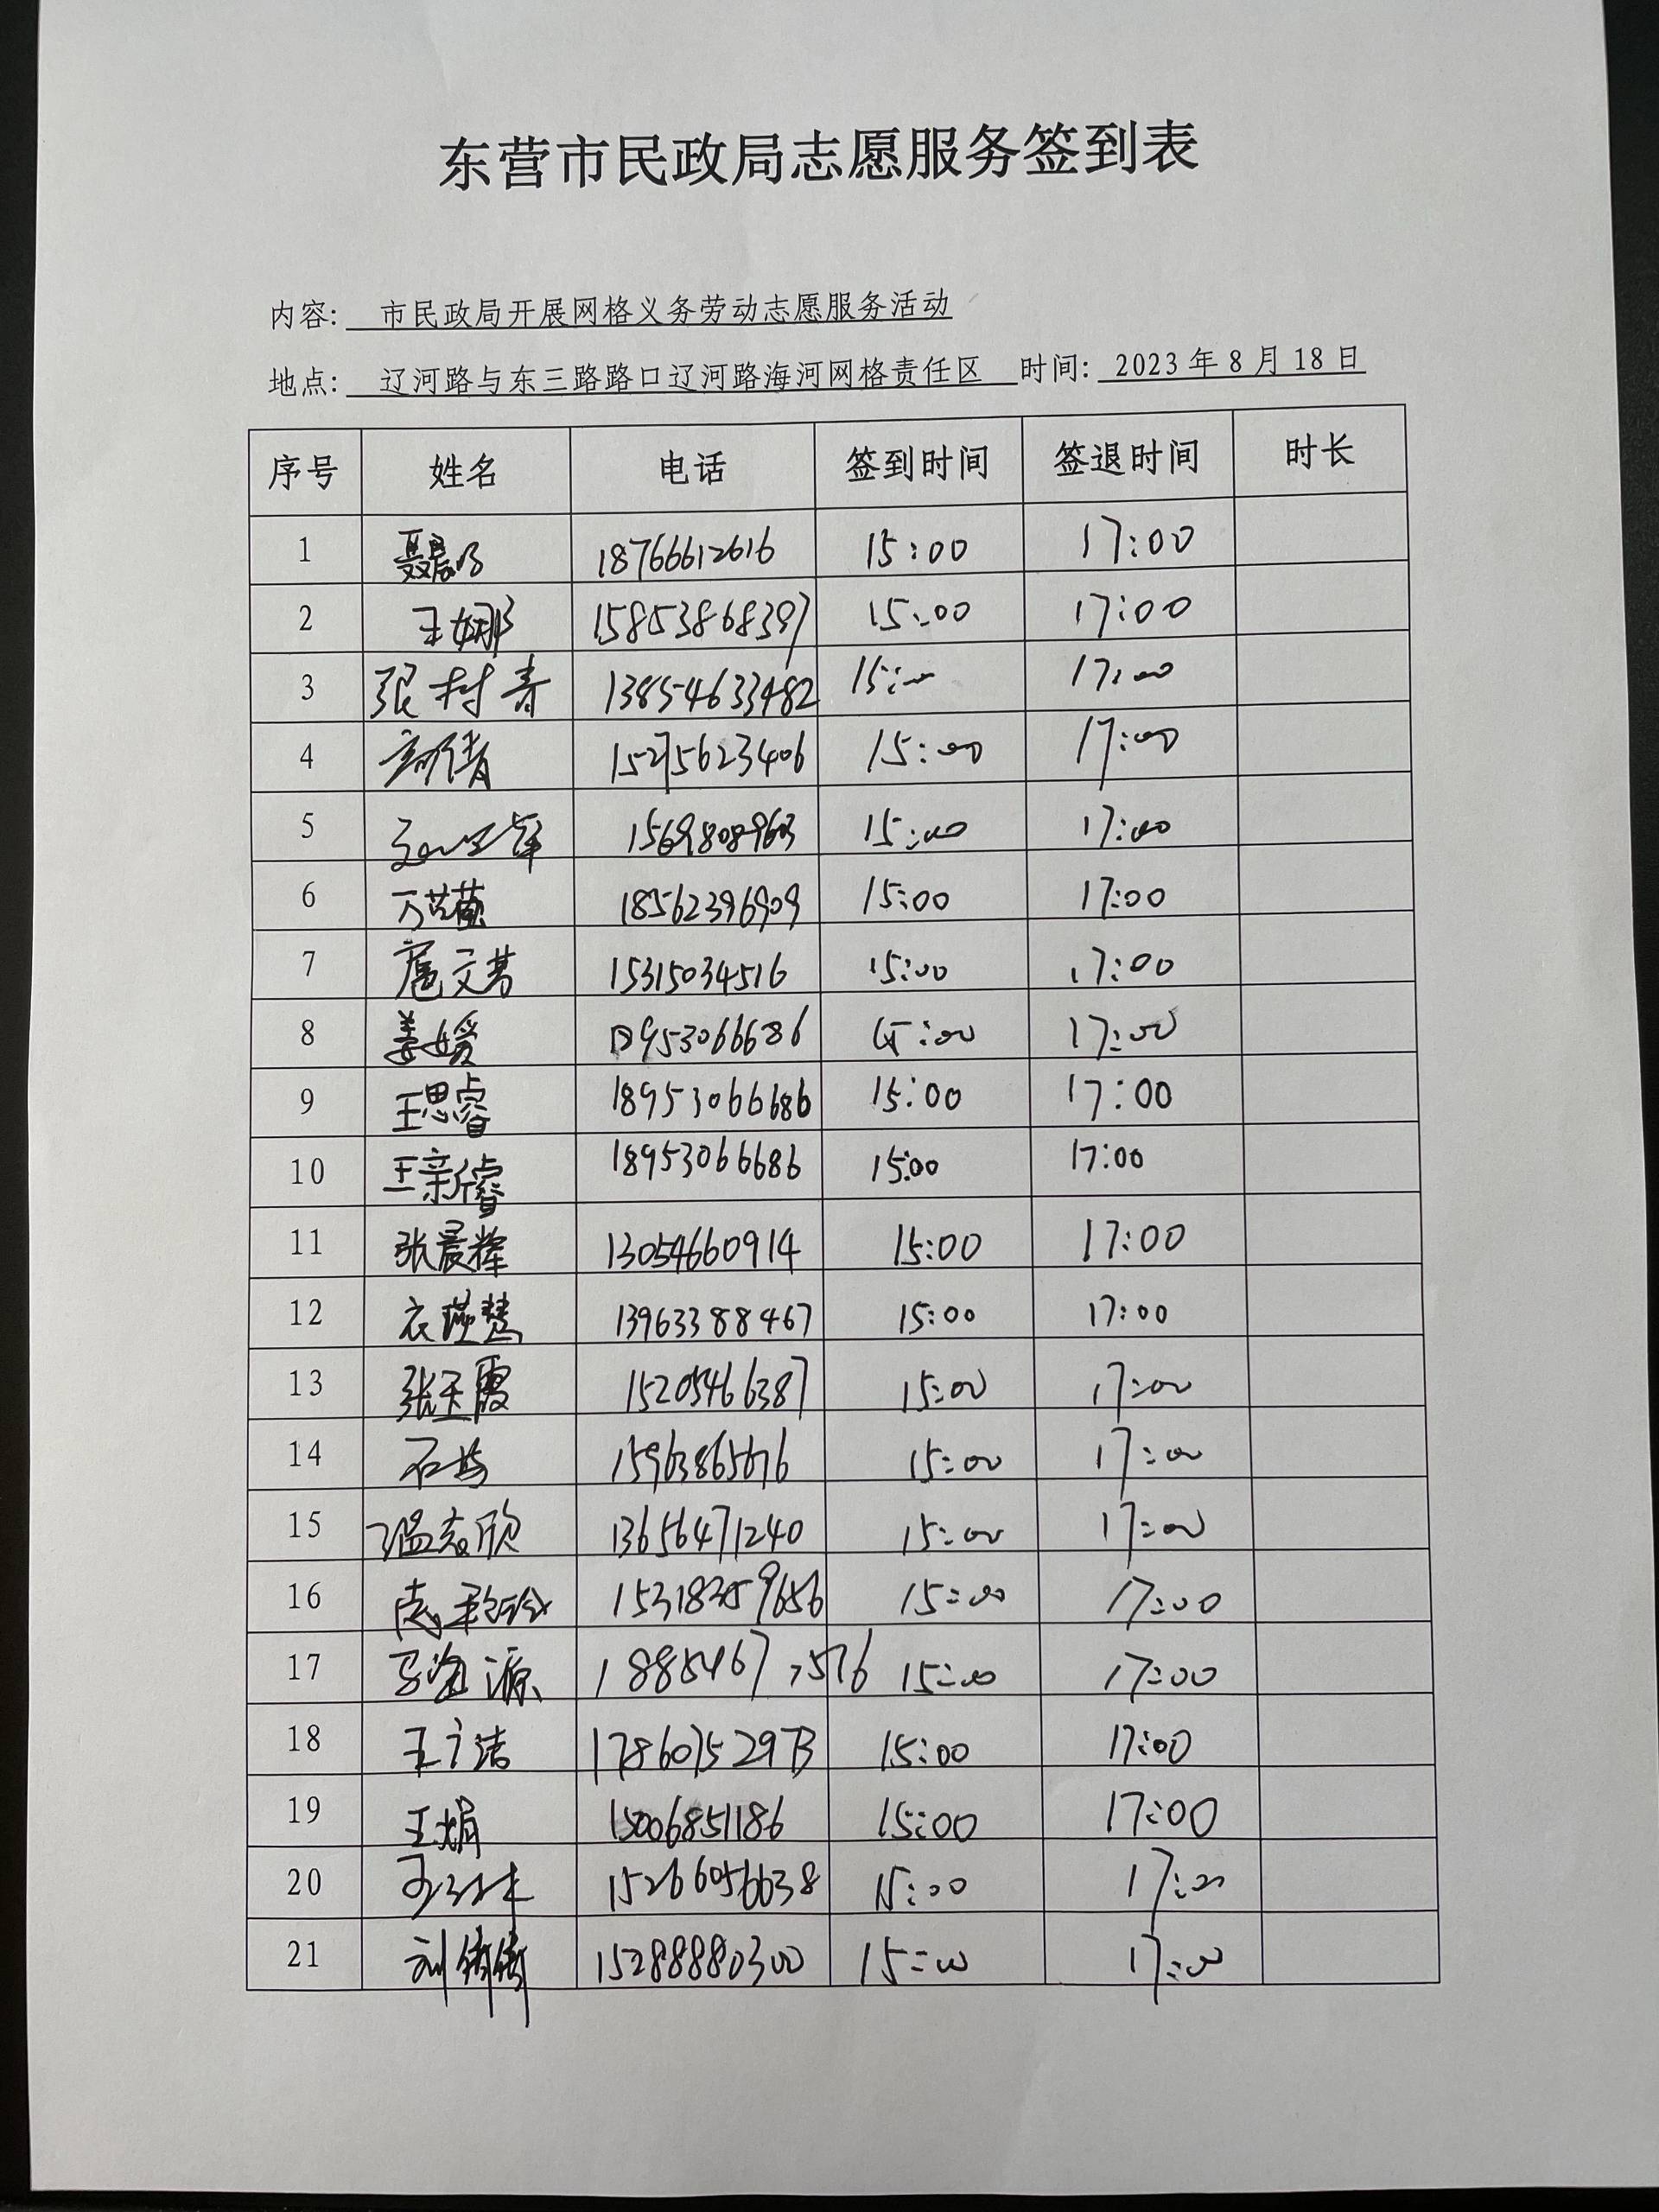 东营市民政局志愿服务签到表
内容: 市民政局开展网格义务劳动志愿服务活动
地点: 辽河路与东三路路口辽河路海河网格责任区 时间: 2023年8月18日
序号 姓名 电话 签到时间 签退时间 时长
1 18766612616 15:00 17:00
2 王娜 15853868397 15:00 17:00
3 张树春 13854633482 15:00 17:00
4 高倩 15275623406 15:00 17:00
5 15698089603 15:00 17:00
6 万芸茵 18562396909 15:00 17:00
7 扈文芳 15315034516 15:00 17:00
8 姜媛 18953066686 15:00 17:00
9 王思睿 18953066686 15:00 17:00
10 王新睿 18953066686 15:00 17:00
11 张晨辉 13054660914 15:00 17:00
12 衣瑛慧 13963388467 15:00 17:00
13 张玉霞 15205466387 15:00 17:00
14 石梅 15963865676 15:00 17:00
15 温志欣 13656471240 15:00 17:00
16 15318359656 15:00 17:00
17 15:00 17:00
18 王广洁 17860752973 15:00 17:00
19 王娟 15006851186 15:00 17:00
20 15266056638 15:00 17:00
21 刘倩倩 15288880300 15:00 17:00